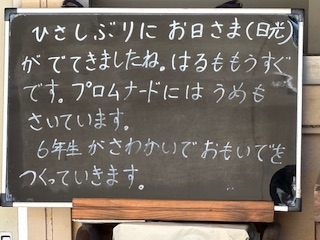 ひさしぶりに お日さま(日光)
が でてきましたね。はるももうすぐ
です。プロムナードには うめも
さいています。
6年生 がさわかいで おもいでを
つくっていきます。